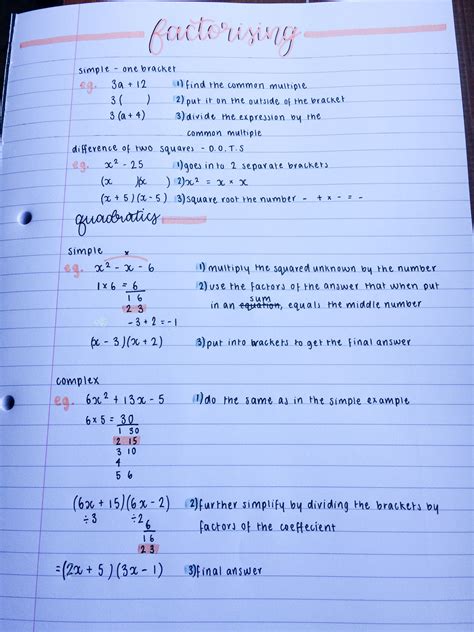 factorising
simple - one bracket
eg. 3a + 12 1) find the common multiple
3 ( ) 2) put it on the outside of the bracket
3 (a + 4) 3) divide the expression by the
common multiple
difference of two squares - D.O.T.S
eg. x² - 25 1) goes in to 2 separate brackets
(x )(x ) 2) x² = x × x
(x + 5)(x - 5) 3) square root the number - + × - = -
quadratics
simple ×
eg. x² - x - 6 1) multiply the squared unknown by the number
1 × 6 = 6 2) use the factors of the answer that when put
1 6 in an equation, sum equals the middle number
2 3
- 3 + 2 = - 1
(x - 3)(x + 2) 3) put into brackets to get the final answer
complex
eg. 6x² + 13x - 5 1) do the same as in the simple example
6 × 5 = 30
1 30
2 15
3 10
4
5 6
(6x + 15)(6x - 2) 2) further simplify by dividing the brackets by
÷3 ÷2 factors of the coeffecient
6
1 6
2 3
= (2x + 5)(3x - 1) 3) final answer